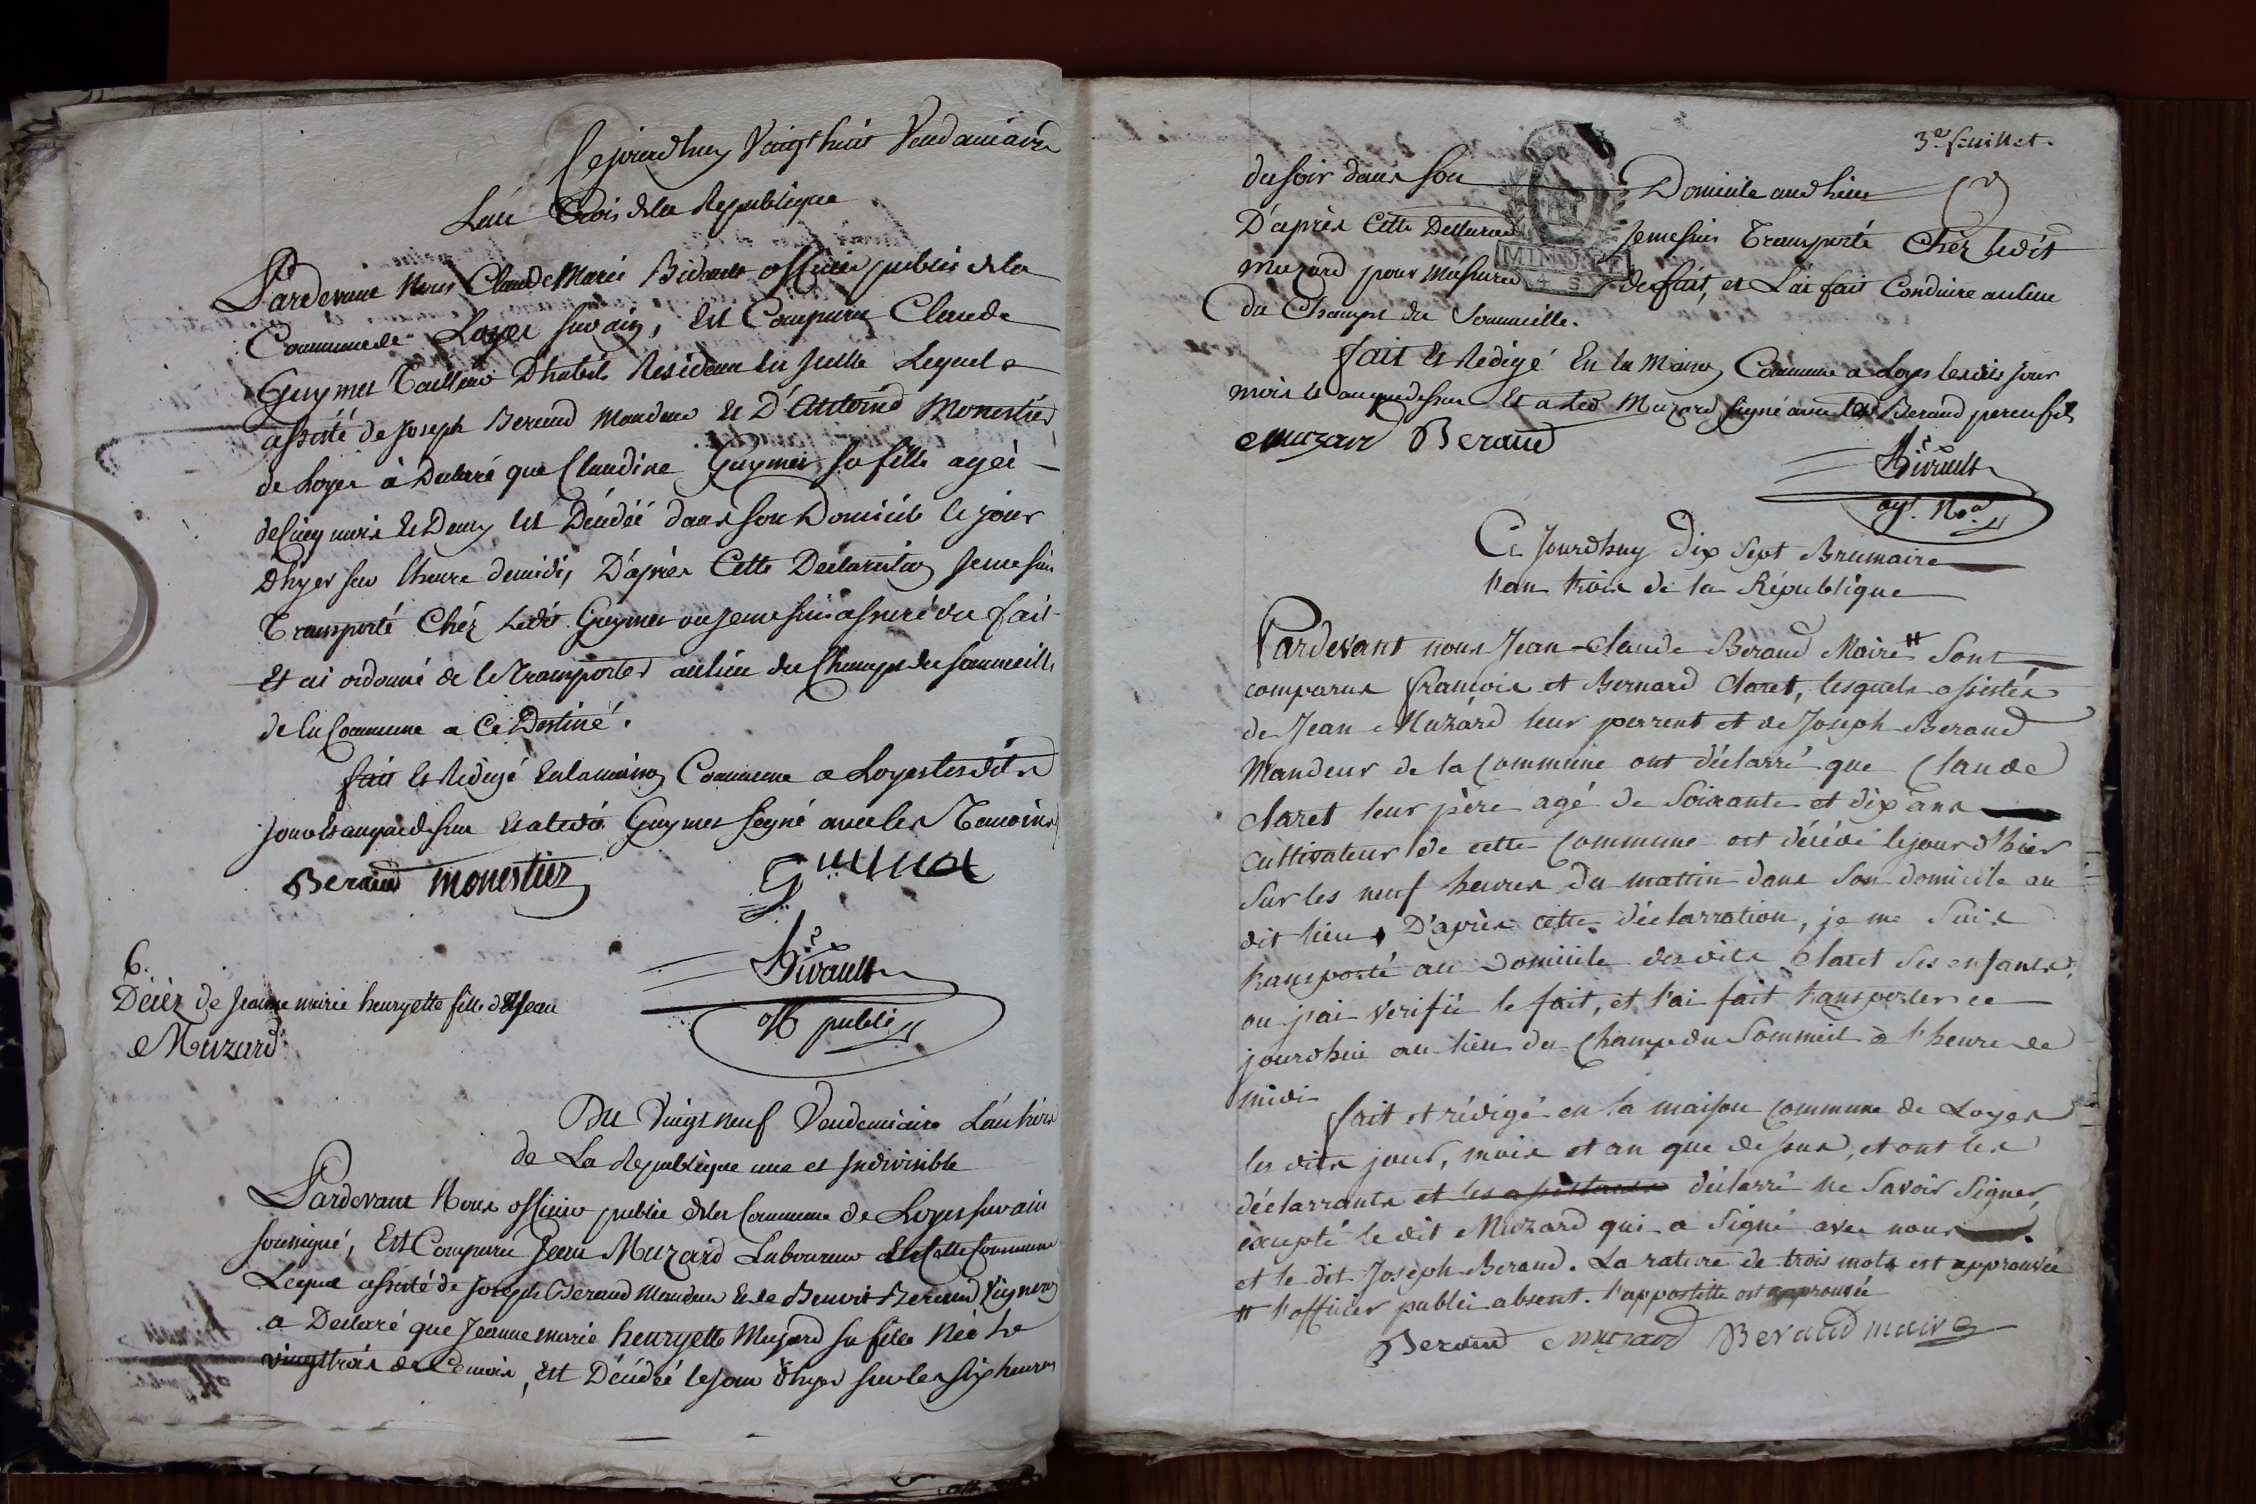 Cejourdhuy Vingt huit Vendemiaire
Lan trois dela Republique
Pardevant Nous Claude Marie Bivault officier public dela
Commune de Loyes sur ain, Est Comparu Claude
Guymet Tailleur D'habits Residant en Lequel
assisté de Joseph Beraud Mandeur et D'Antoine Monestier
de Loyes à Declaré que Claudine Guymet sa fille agée
de Cinq mois et Demy est Décédée dans son Domicile le jour
dhyer sur lheure demidi, D'après Cette Declaration Jeme suis
Transporté Chéz Ledit Guymet ou jeme suis assuré du fait
Et ai ordonné de le Transporter aulieu du Champ du Sommeille
de la Commune a Ce Destiné.
fait et Redigé en lamaison Commune a Loyes lesdits
jour et an que dessus et aledit Guymet Signé avec les Temoins
Beraud monestier Guimet
Bivault
off public
6.
Décéz de Jeanne marie henryette fille de Jean
Muzard
Du Vingt neuf Vendemiaire L'an trois
de La Republique une et Indivisible
Pardevant Nous officier public dela Commune de Loyes sur ain
soussigné, Est Comparu Jean Muzard Laboureur de Cette Commune
Lequel assisté de Joseph Beraud Mandeur et de Benoit Beraud Vigneron
a Declaré que Jeanne marie henryette Muzard sa fille Née le
vingt trois de Ce mois, est Décédée le jour d'hyer sur les six heures
3e. feuillet.
du soir dans son Domicile aud. lieu
D'après Cette Declaration Jeme suis Transporté Chéz ledit
Muzard pour m'assurer du fait, et L'ai fait Conduire aulieu
du Champ du Sommeille.
fait et Redigé En la Maison Commune a Loyes lesdits jour
mois et an que dessus Et a led. Muzard signé avec Beraud pere
Muzard Beraud
Bivault
Ce Jourdhuy dix Sept Brumaire
l'an trois de la République
Pardevant nous Jean-Claude Beraud Maire # Sont
comparus francois et Bernard Claret, lesquels assistés
de Jean Muzard leur parrent et de Joseph Beraud
Mandeur de la Commune ont déclarré que Claude
Claret leur père agé de Soixante et dix ans
cultivateur de cette Commune est décédé le jour d'hier
sur les neuf heures du mattin dans son domicile au
dit lieu. D'après cette déclarration, je me suis
transporté au domicile desdits Claret ses enfants,
ou j'ai vérifié le fait, et l'ai fait transporter ce
jourdhui au lieu du Champ du Sommeil à l'heure de
midi
fait et rédigé en la maison Commune de Loyes
les dits jour, mois et an que dessus, et ont les
déclarrants et les assistants déclarré ne Savoir Signer,
excepté le dit Muzard qui a Signé avec nous
et le dit Joseph Beraud. La rature de trois mots est approuvée
# l'officier public absent. l'appostille est approuvée
Beraud Muzard Beraud maire